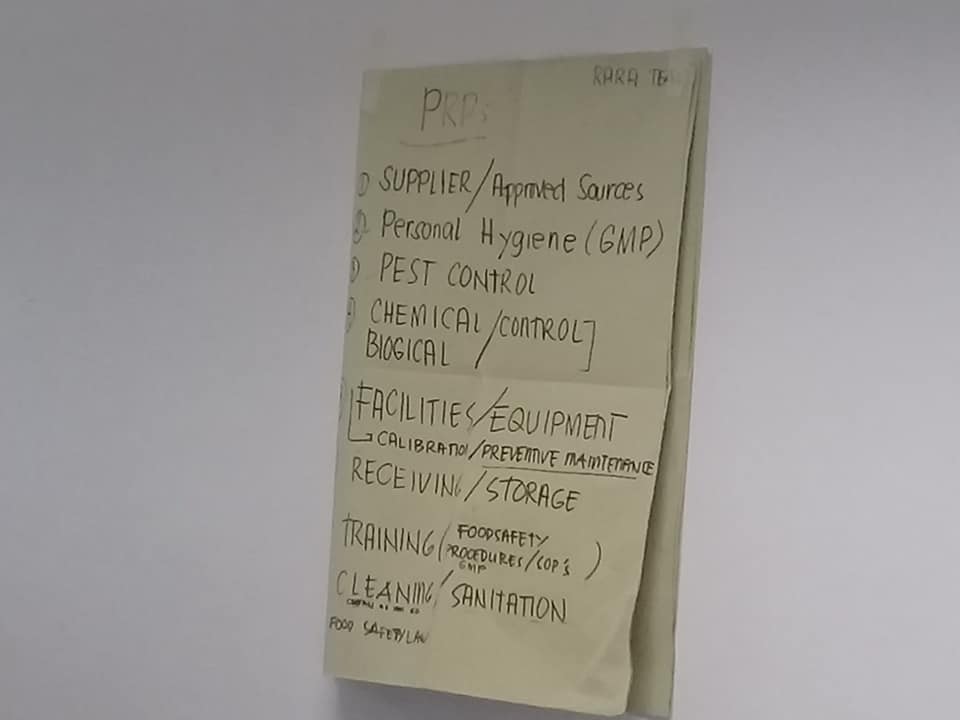 RARA
PRPs
① SUPPLIER/Approved Sources
② Personal Hygiene (GMP)
③ PEST CONTROL
④ CHEMICAL/CONTROL]
BIOGICAL
FACILITIES/EQUIPMENT
CALIBRATION/PREVENTIVE MAINTENANCE
RECEIVING/STORAGE
TRAINING (FOODSAFETY
PROCEDURES/SOP's)
GMP
CLEANING/SANITATION
FOOD SAFETY LAW